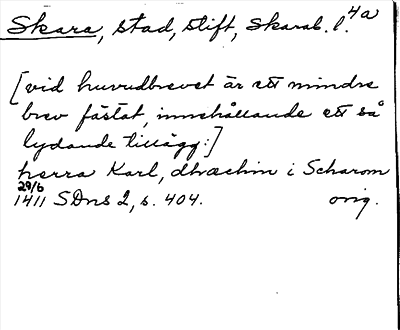 Skara, stad, stift, Skarab. l. 4a
[vid huvudbrevet är ett mindre
brev fästat, innehållande ett så
lydande tillägg:]
herra Karl, dhræchin i Scharom
29/6
1411 SDns 2, s. 404. orig.